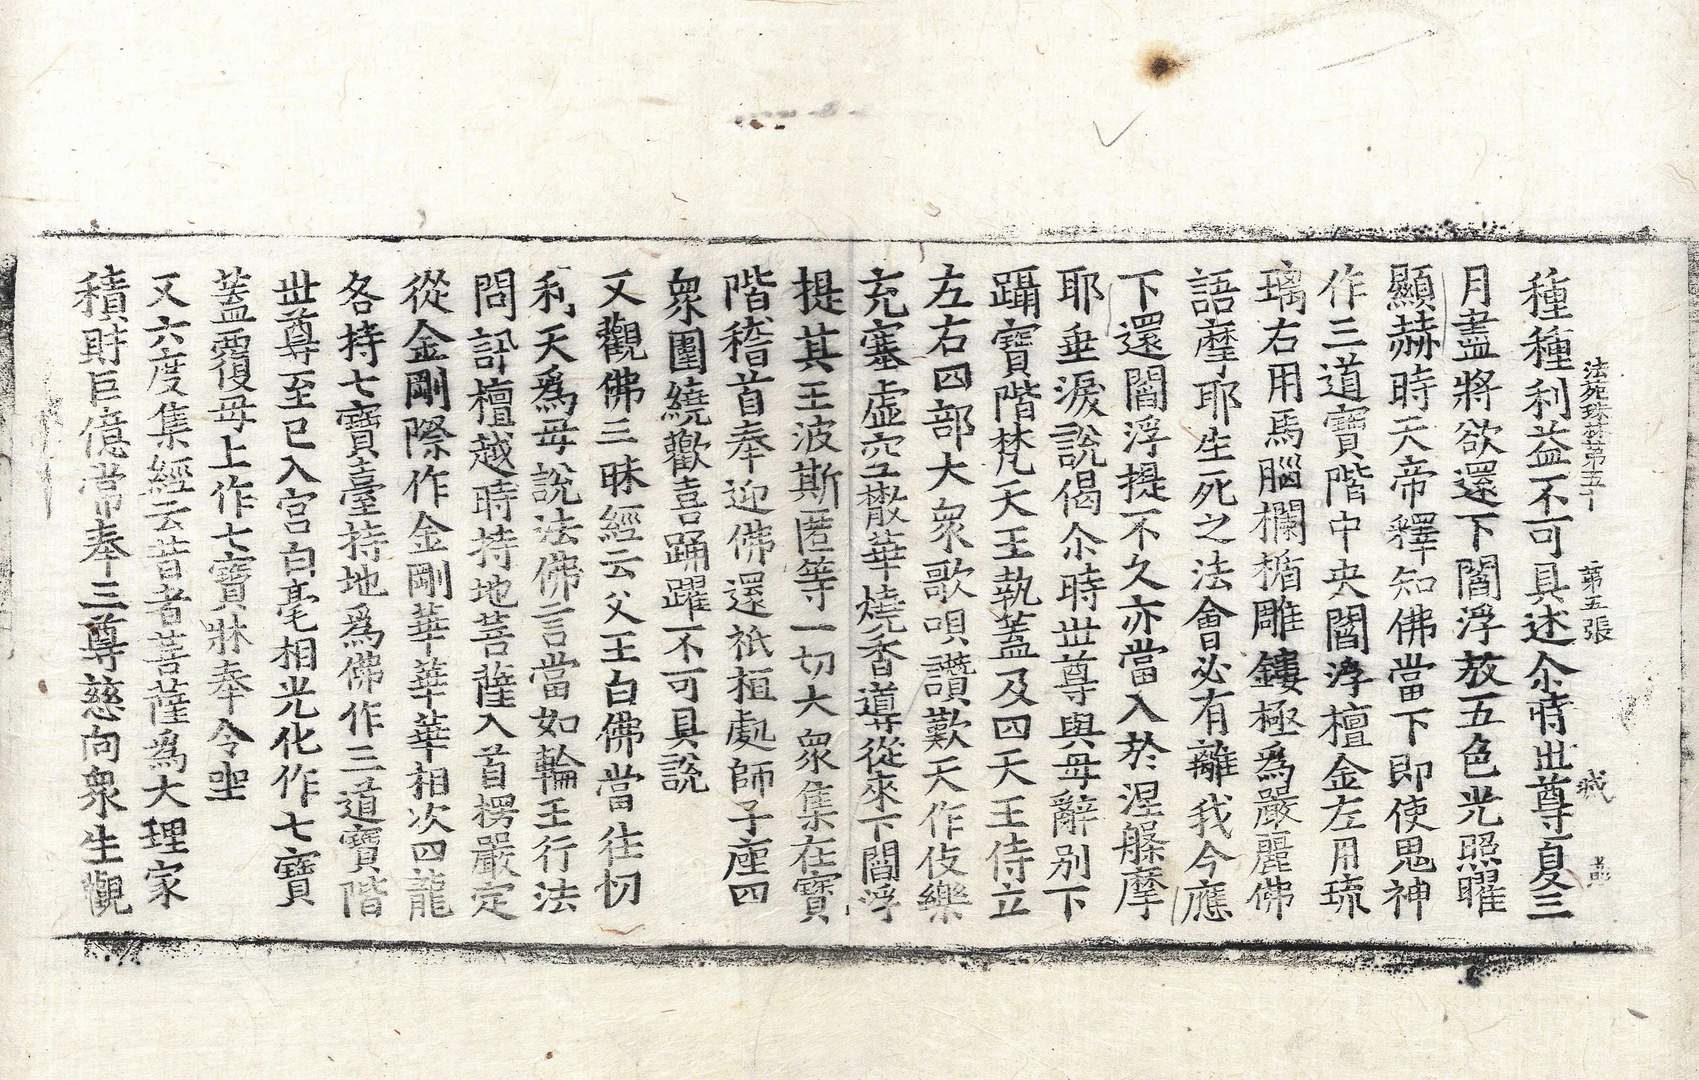 法苑珠林第五十 第五張 
種種利益不可具述尒時世尊夏三
月盡將欲還下閻浮放五色光照曜
顯赫時天帝釋知佛當下即使鬼神
作三道寶階中央閻浮檀金左用琉
璃右用馬腦欄楯雕鏤極爲嚴麗佛
語摩耶生死之法會必有離我今應
下還閻浮提不久亦當入於涅槃摩
耶垂淚說偈尒時世尊與母辭别下
躡寶階梵天王執蓋及四天王侍立
左右四部大衆歌唄讚歎天作伎樂
充塞虛空散華燒香導從來下閻浮
提其王波斯匿等一切大衆集在寶
階稽首奉迎佛還祇桓處師子座四
衆圍繞歡喜踊躍不可具說
又觀佛三昧經云父王白佛當往忉
利天爲母說法佛言當如輪王行法
問訊檀越時持地菩薩入首楞嚴定
從金剛際作金剛華華華相次四龍
各持七寶臺持地爲佛作三道寶階
世尊至已入宮白毫相光化作七寶
蓋覆母上作七寶牀奉令坐
又六度集經云昔者菩薩爲大理家
積財巨億常奉三尊慈向衆生觀